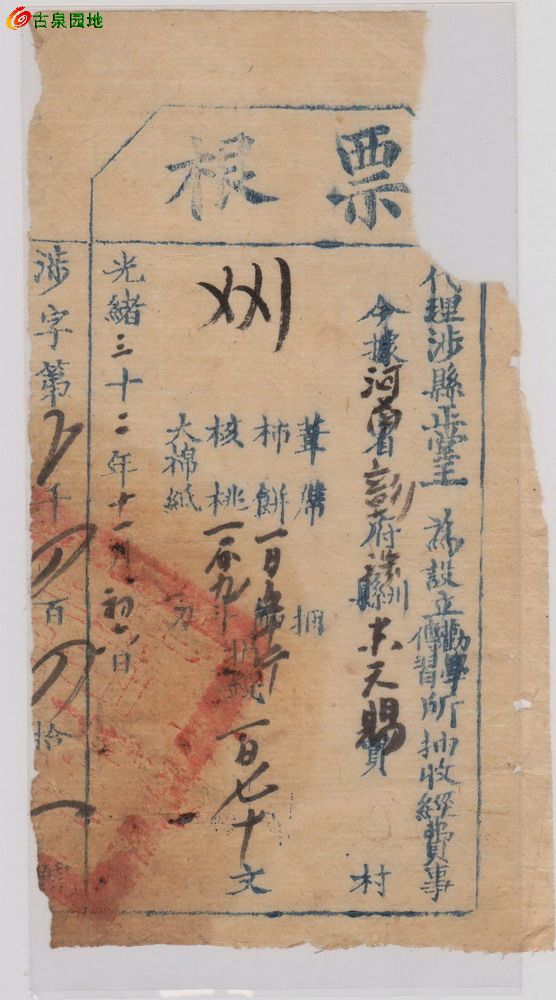 古泉园地
票根
代理涉縣正堂王 為設立勸學傳習所抽收經費事
今據河南省彰府涉縣州 天賜 貨 村
葦席 捆
柿餅 一百 斤
核桃 抽錢一百七十文
大棉紙 刀
光緒三十二年十一月初六日
涉字第 千 百 拾一號